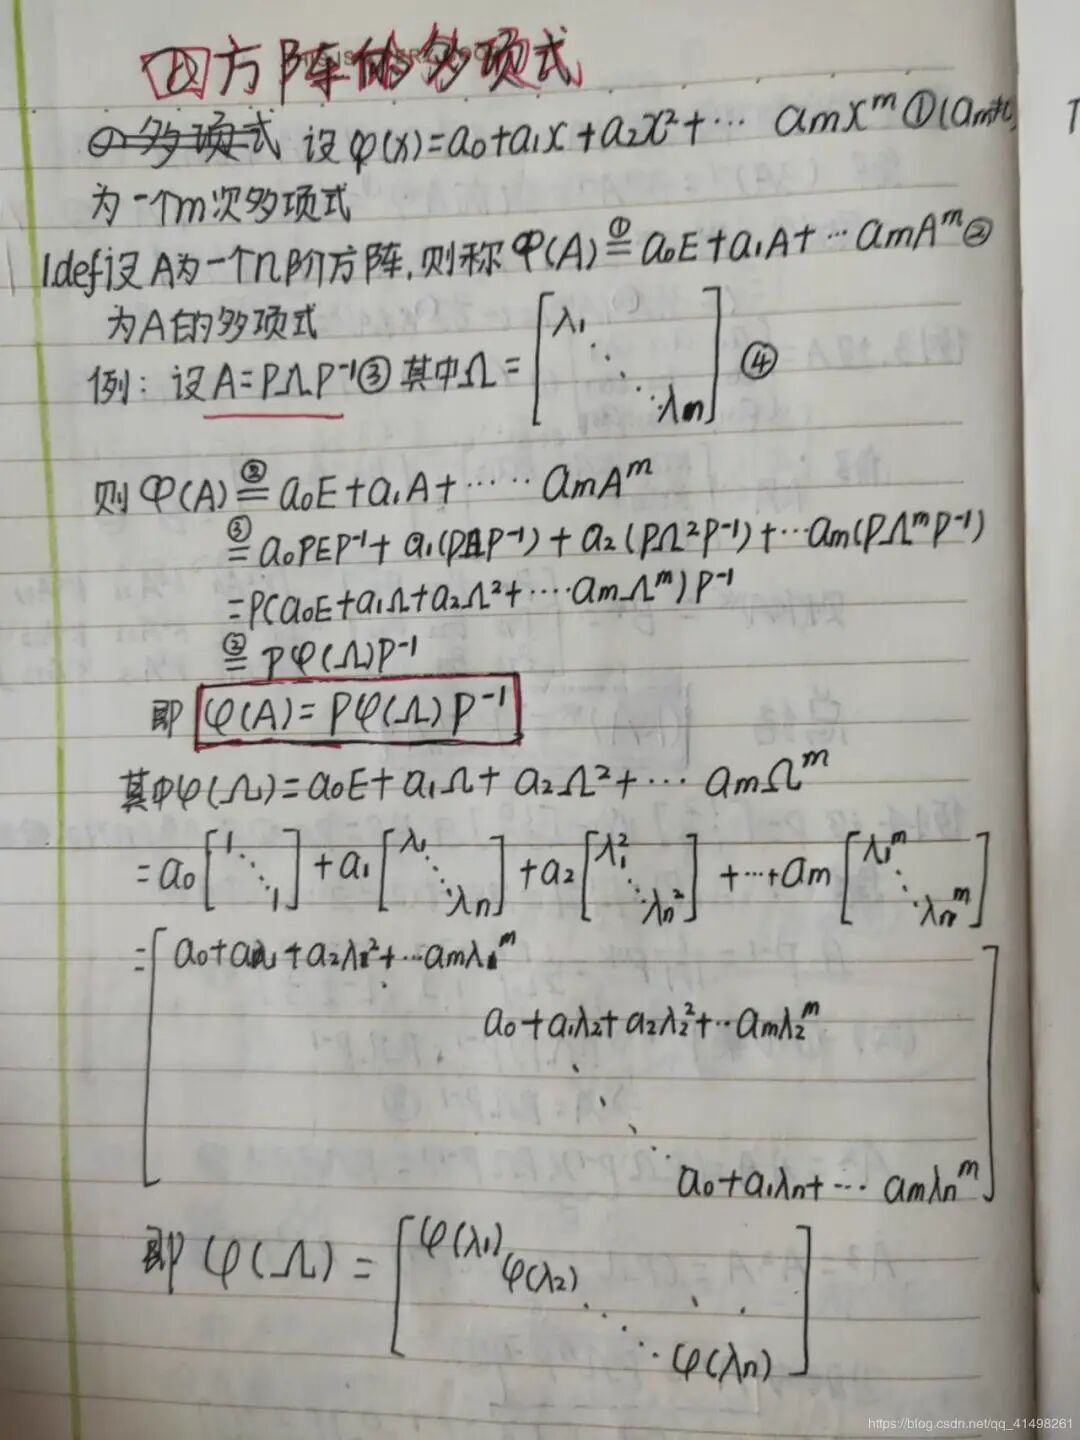 四方阵的多项式
多项式 设 φ(x)=a₀+a₁x+a₂x²+… aₘxᵐ ①(aₘ≠0)
为一个m次多项式
1.def设 A为一个n阶方阵,则称 φ(A) ①= a₀E+a₁A+… aₘAᵐ ②
为A的多项式
例: 设 A=PΩP⁻¹ ③ 其中Ω= [λ₁ ⋱ λₙ] ④
则 φ(A) ②= a₀E+a₁A+…… aₘAᵐ
③= a₀PEP⁻¹+ a₁(PΩP⁻¹)+ a₂(PΩ²P⁻¹)+…aₘ(PΩᵐP⁻¹)
=P(a₀E+a₁Ω+a₂Ω²+…·aₘΩᵐ)P⁻¹
②= Pφ(Ω)P⁻¹
即 φ(A)=Pφ(Ω)P⁻¹
其中φ(Ω)=a₀E+a₁Ω+a₂Ω²+… aₘΩᵐ
=a₀[1 ⋱ 1]+a₁[λ₁ ⋱ λₙ]+a₂[λ₁² ⋱ λₙ²]+…+aₘ[λ₁ᵐ ⋱ λₙᵐ]
=[a₀+a₁λ₁+a₂λ₁²+…aₘλ₁ᵐ
a₀+a₁λ₂+a₂λ₂²+…aₘλ₂ᵐ
⋱
a₀+a₁λₙ+… aₘλₙᵐ]
即 φ(Ω)=[φ(λ₁)
φ(λ₂)
⋱
φ(λₙ)]
https://blog.csdn.net/qq_41498261